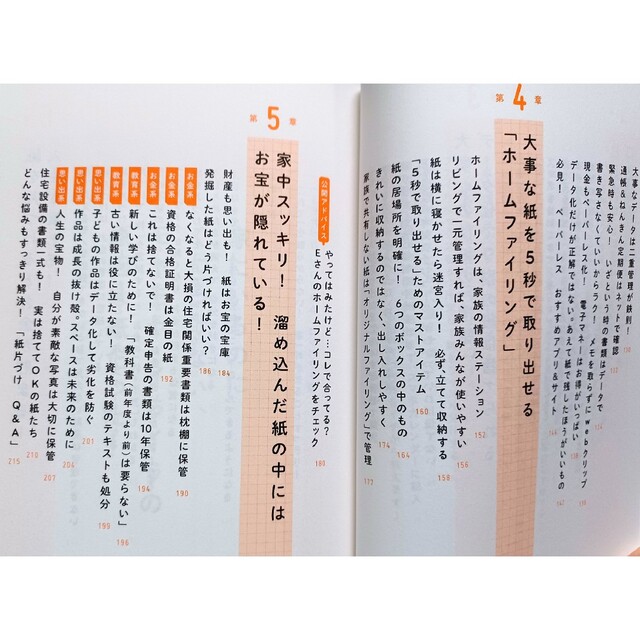 大事なデータは二重管理が鉄則!
通帳&ねんきん定期便はネットで確認
緊急時も安心! いざという時の書類はデータで
書き写さなくていいからラク! メモを取らずにwebクリップ
現金もペーパーレス化! 電子マネーはお得がいっぱい
データ化だけが正解ではない。あえて紙で残したほうがいいもの
必見! ペーパーレス おすすめアプリ&サイト
第4章
大事な紙を5秒で取り出せる
「ホームファイリング」
ホームファイリングは、家族の情報ステーション 152
リビングで一元管理すれば、家族みんなが使いやすい 156
紙は横に寝かせたら迷宮入り! 必ず立てて収納する 158
「5秒で取り出せる」ためのマストアイテム 160
紙の居場所を明確に! 6つのボックスの中のもの 164
きれいに収納するのではなく、出し入れしやすく 173
家族で共有しない紙は「オリジナルファイリング」で管理 177
公開アドバイス やってはみたけど…コレで合ってる?
Eさんのホームファイリングをチェック 180
第5章
家中スッキリ! 溜め込んだ紙の中には
お宝が隠れている!
財産も思い出も! 紙はお宝の宝庫 184
発掘した紙はどう片づければいい? 186
お金系 なくなると大損の住宅関係重要書類は枕棚に保管 190
お金系 資格の合格証明書は金目の紙 192
お金系 これは捨てないで! 確定申告の書類は10年保管 194
教育系 新しい学びのために! 「教科書(前年度より前)は要らない」 196
教育系 古い情報は役に立たない! 資格試験のテキストも処分 195
思い出系 子どもの作品はデータ化して劣化を防ぐ 201
思い出系 作品は成長の抜け殻。スペースは未来のために 204
思い出系 人生の宝物! 自分が素敵な写真は大切に保管 207
住宅設備の書類一式も! 実は捨ててOKの紙たち 210
どんな悩みもすっきり解決! 「紙片づけ Q&A」 215